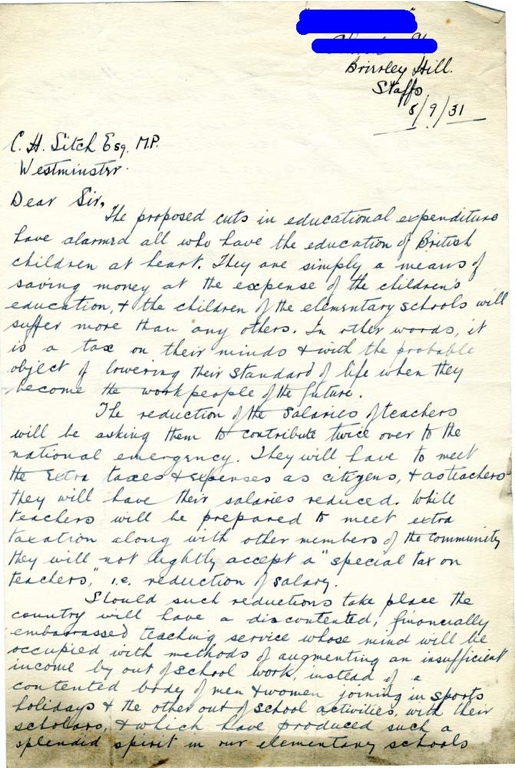 Brierley Hill.
Staffs
8/9/31
C. H. Sitch Esq. M.P.
Westminster.
Dear Sir,
The proposed cuts in educational expenditure
have alarmed all who have the education of British
children at heart. They are simply a means of
saving money at the expense of the children's
education, & the children of the elementary schools will
suffer more than any others. In other words, it
is a tax on their minds & with the probable
object of lowering their standard of life when they
become the workpeople of the future.
The reduction of the salaries of teachers
will be asking them to contribute twice over to the
national emergency. They will have to meet
the extra taxes & expenses as citizens, & as teachers
they will have their salaries reduced. While
teachers will be prepared to meet extra
taxation along with other members of the community
they will not lightly accept a "special tax on
teachers," i.e. reduction of salary.
Should such reductions take place the
country will have a discontented, financially
embarrassed teaching service whose mind will be
occupied with methods of augmenting an insufficient
income by out of school work, instead of a
contented body of men & women joining in sports
holidays & the other out of school activities, with their
scholars, & which have produced such a
splendid spirit in our elementary schools